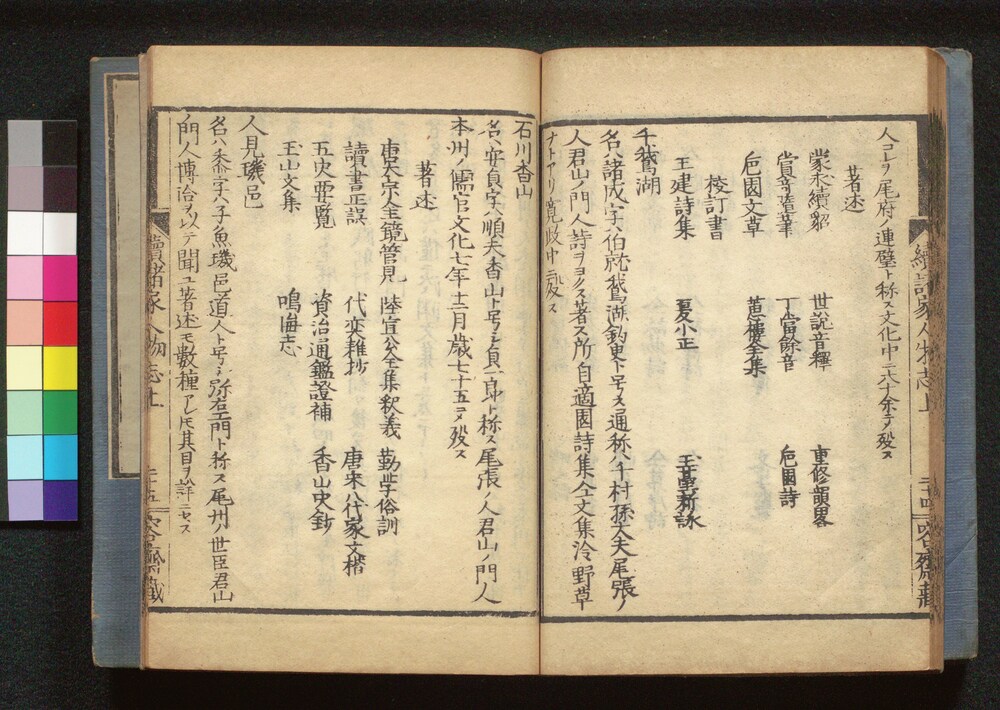 人コレヲ尾府ノ連璧ト称ス文化中ニ六十余ニテ歿ス
著述
蒙求續貂 世説音釋 重修韻畧
賞奇隨筆 丁當餘音 巵園詩
巵園文草
校訂書
王建詩集 夏小正
千鵞湖
名ハ諸成字ハ伯就鵞湖釣叟ト号ス通称ハ千村孫大夫尾張ノ
人君山ノ門人詩ヲヨクス著ス所自適園詩集仝文集泠野草
ナトアリ寛政中ニ歿ス
續諸家人物志上
二十四
石川香山
名ハ安貞字ハ順夫香山ト号シ貞一郎ト称ス尾張ノ人君山ノ門人
本州ノ儒官文化七年十二月歳七十五ニメ歿ス
著述
唐太宗金鏡管見 陸宣公全集釈義 勤学俗訓
讀書正誤 代奕雜抄 唐宋八代家文楷
五史要覧 資治通鑑證補 香山史鈔
玉山文集 鳴海志
人見璣邑
名ハ黍字ハ子魚璣邑道人ト号ス弥右エ門ト称ス尾州ノ世臣君山
ノ門人博洽ヲ以テ聞ユ著述モ數種アレモ其目ヲ詳ニセス
續諸家人物志上
二十五